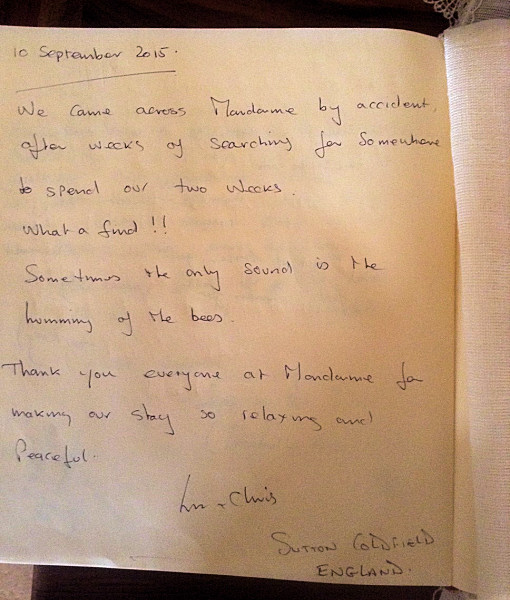 10 September 2015.
We came across Mandarine by accident,
after weeks of searching for somewhere
to spend our two weeks.
What a find!!
Sometimes the only sound is the
humming of the bees.
Thank you everyone at Mandarine for
making our stay so relaxing and
Peaceful.
+ Chris
SUTTON COLDFIELD
ENGLAND.